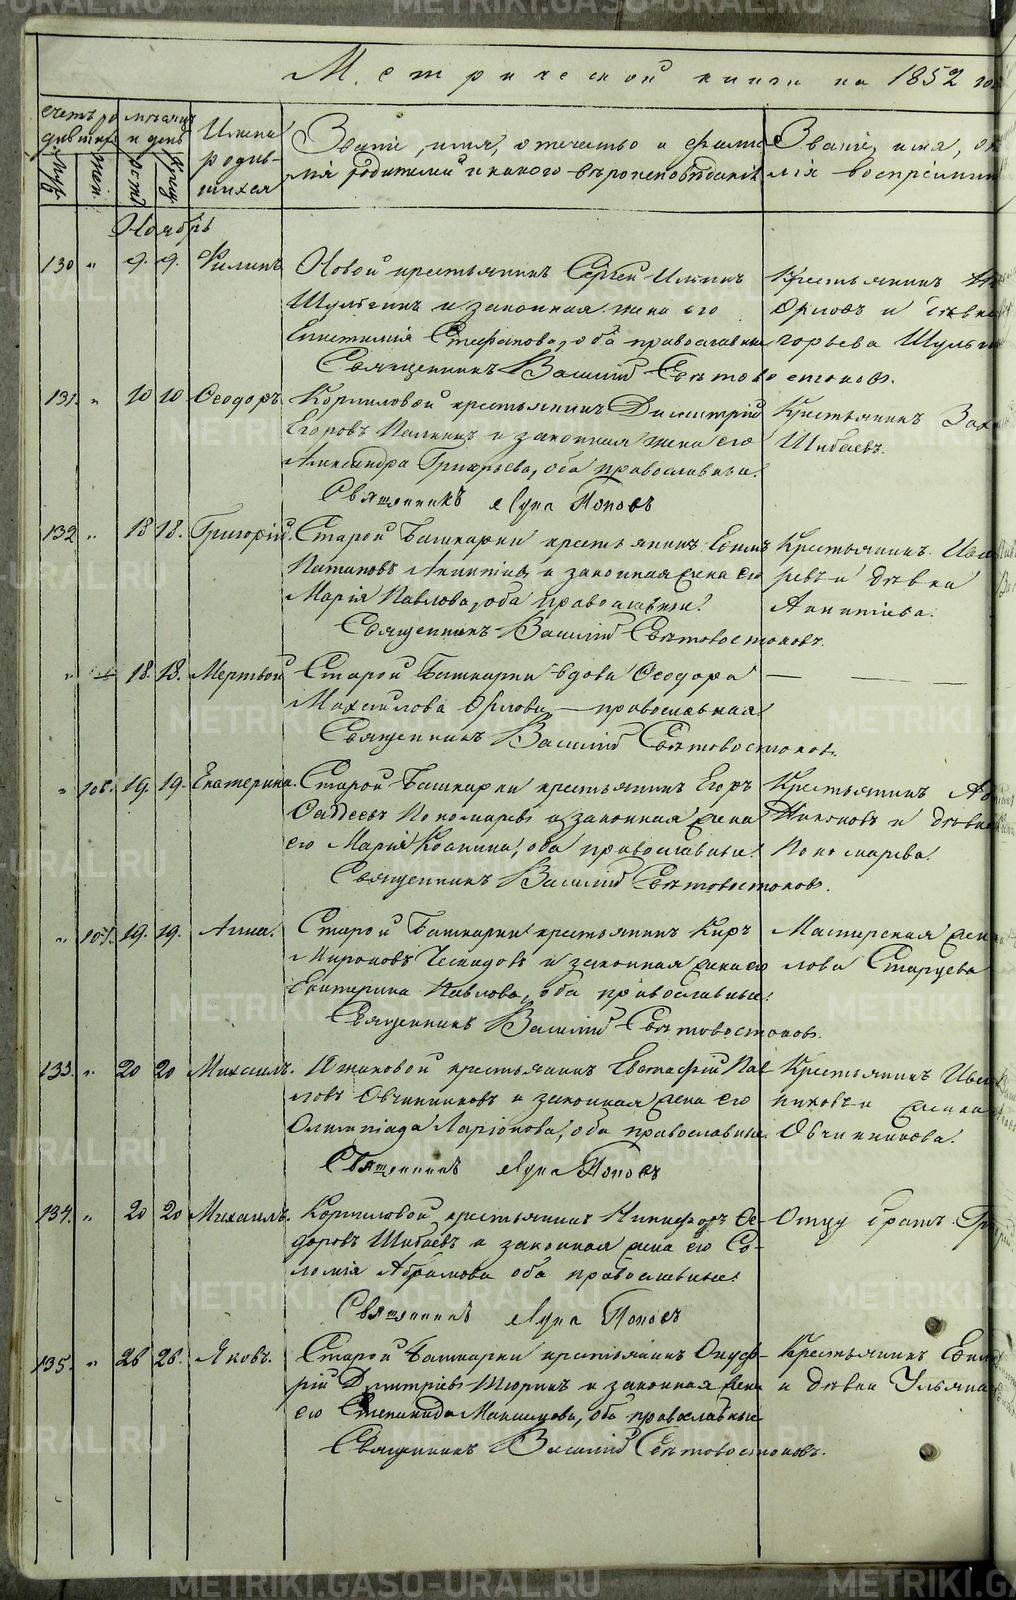 Метрической книги на 1852 го
Счетъ ро
дивших
Муж.
Жен.
мѣсяцъ
и день
рожд.
крещ.
Имена
родив-
шихся
Званіе, имя, отчество и фами
лія родителей и какого вѣроисповѣданія
Званіе, имя, от
лія воспріемни
Ноябрь
130 " 9. 9. Филипъ
Новой крестьянинъ Сергей Ильинъ
Шульгинъ и законная жена его
Епистимія Стефанова, оба православные
Священникъ Василій Свѣтовостоковъ.
Крестьянинъ
Орловъ и дѣвка
горьева Шульги
131. " 10 10 Ѳеодоръ.
Кормиловой крестьянинъ Димитрій
Егоровъ Палкинъ и законная жена его
Александра Григорьева, оба православные.
Священникъ Лука Поповъ
Крестьянинъ Зах
Шибаевъ.
132 " 18 18. Григорій.
Старой Башкарки крестьянинъ Ефимъ
Потаповъ Аникіевъ и законная жена его
Марія Павлова, оба православные.
Священникъ Василій Свѣтовостоковъ.
Крестьянинъ Ива
ревъ и дѣвка
Аникіева.
" 18. 18. Мертвой
Старой Башкарки вдова Ѳеодора
Михайлова Орлова, православная
Священникъ Василій Свѣтовостоковъ.
— — —
" 106. 19. 19. Екатерина.
Старой Башкарки крестьянинъ Егоръ
Фаддеевъ Пономаревъ и законная жена
его Марія Козмина, оба православные.
Священникъ Василій Свѣтовостоковъ.
Крестьянинъ
и дѣвка
Пономарева.
" 107. 19. 19. Анна.
Старой Башкарки крестьянинъ Киръ
Мироновъ и законная жена его
Екатерина Павлова, оба православные.
Священникъ Василій Свѣтовостоковъ.
Мастерская жена
лова Старцева
133. " 20 20 Михаилъ.
Южаковой крестьянинъ Евстафій Пав
ловъ Овчинниковъ и законная жена его
Олимпіада Ларіонова, оба православные.
Священникъ Лука Поповъ
Крестьянинъ Ива
никовъ и
Овчинникова.
134. " 20 20 Михаилъ.
Кормиловой крестьянинъ Никифоръ Ѳе-
доровъ Шибаевъ и законная жена его Со-
ломія Абрамова оба православные.
Священникъ Лука Поповъ
Отцу братъ Гри
135. " 26 26. Яковъ.
Старой Башкарки крестьянинъ Онуф-
рій Дмитріевъ Тюринъ и законная жена
его Степанида Максимова, оба православные
Священникъ Василій Свѣтовостоковъ.
Крестьянинъ
и дѣвка Ульяна
METRIKI.GASO-URAL.RU